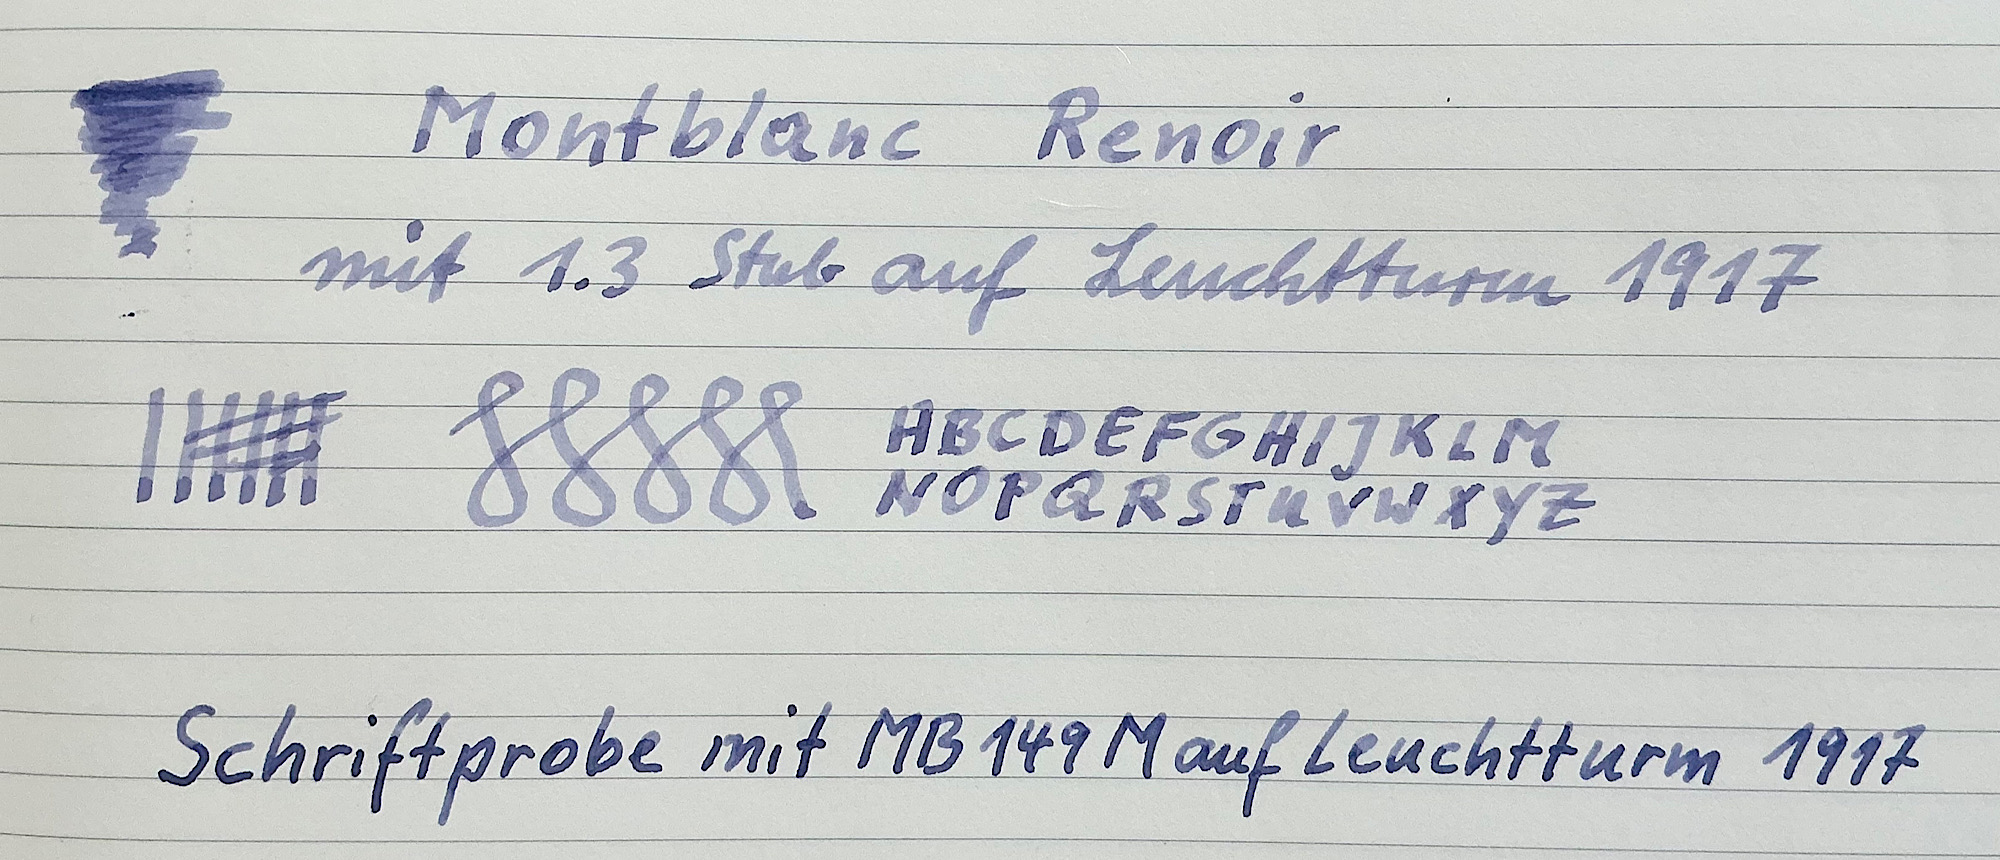 Montblanc Renoir
mit 1.3 Stub auf Leuchtturm 1917
ABCDEFGHIJKLM
NOPQRSTUVWXYZ
Schriftprobe mit MB 149 M auf Leuchtturm 1917